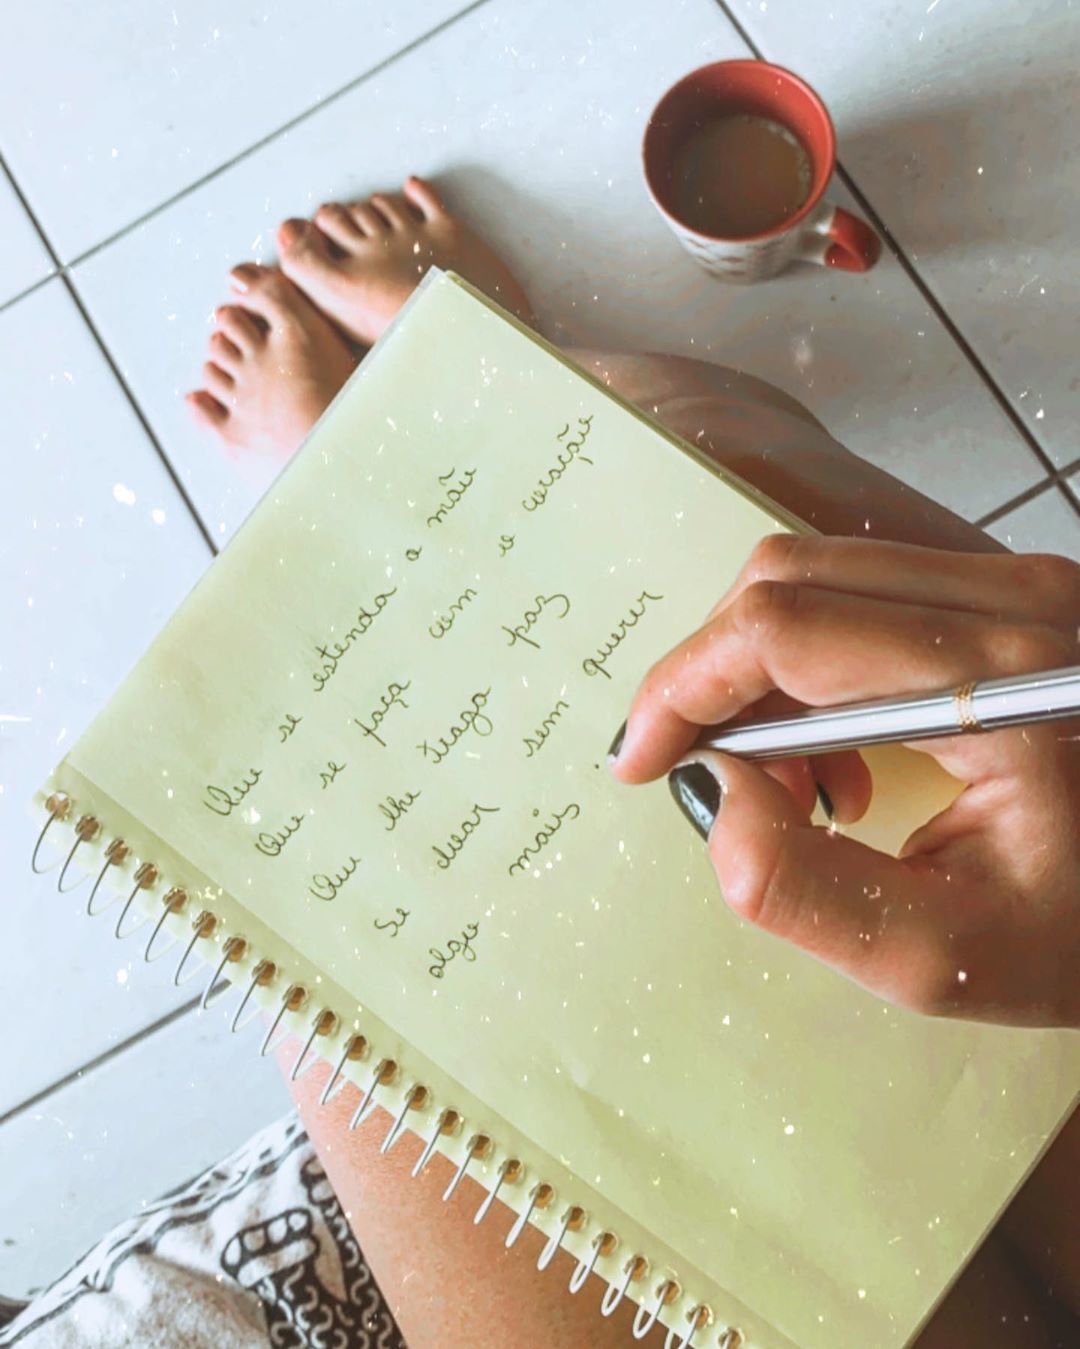 Que se estenda a mão
Que se faça com o coração
Que lhe traga paz
Se doar sem querer
algo mais.